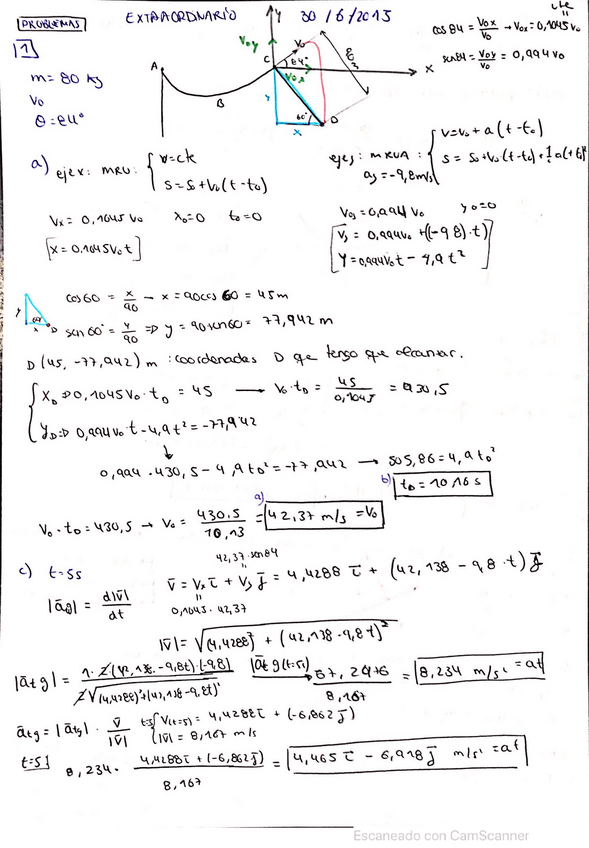 PROBLEMAS
EXTRAORDINARIO 30/6/2015
cte
cos84 = Vox/Vo → Vox = 0,1045 Vo
sen84 = Voy/Vo = 0,994 Vo
1
m = 80 kg
Vo
θ = 84°
A
B
C
Y
X
Voy
Vo
84°
Vox
90
60°
D
y
x
a) eje x: MRU: { v = cte
s = so + Vo (t - to)
eje y: MRUA: { v = vo + a (t - to)
ay = -9,8 m/s
s = so + Vo (t - to) + 1/2 a (t - to)²
Vx = 0,1045 Vo xo = 0 to = 0
[x = 0,1045 Vo t]
Voy = 0,994 Vo yo = 0
[Vy = 0,994 Vo + (-9,8) · t)
Y = 0,994 Vo t - 4,9 t²]
cos60 = x/90 → x = 90 cos 60 = 45 m
sen 60° = y/90 ⇒ y = 90 sen60 = 77,942 m
D (45, -77,942) m : coordenadas D que tengo que alcanzar.
{ XD ⇒ 0,1045 Vo · tD = 45 → Vo · tD = 45/0,1045 = 430,5
YD ⇒ 0,994 Vo t - 4,9 t² = -77,942
0,994 · 430,5 - 4,9 tD² = -77,942 → 505,86 = 4,9 tD²
b) tD = 10,16 s
Vo · tD = 430,5 → Vo = 430,5/10,13 = a) 42,37 m/s = Vo
c) t = 5s
42,37 · sen84
v̄ = Vx ī + Vy j̄ = 4,4288 ī + (42,138 - 9,8 · t) j̄
0,1045 · 42,37
|ātg| = d|v̄|/dt
|v̄| = √((4,4288)² + (42,138 - 9,8t)²)
|ātg| = 1 · 2 · (42,138 - 9,8t) · (-9,8) / 2√((4,4288)² + (42,138 - 9,8t)²) |ātg (t=5)| → 67,2476/8,167 = 8,234 m/s² = at
ātg = |ātg| · v̄/|v̄| t=5 { V(t=5) = 4,4288 ī + (-6,862 j̄)
|v̄| = 8,167 m/s
t=5 } 8,234 · 4,4288 ī + (-6,862 j̄) / 8,167 = 4,465 ī - 6,918 j̄ m/s² = at
Escaneado con CamScanner